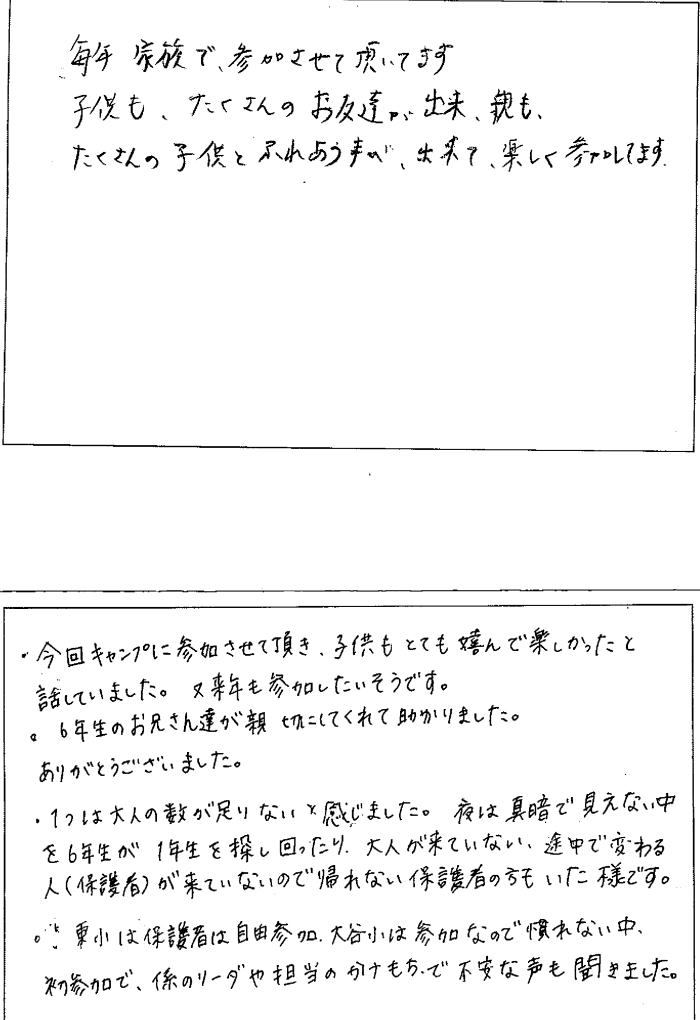 毎年 家族で、参加させて頂いてます
子供も、たくさんの お友達が 出来、親も、
たくさんの 子供と ふれあう事が、出来て、楽しく 参加してます.
・今回キャンプに参加させて頂き、子供も とても 嬉んで楽しかったと
話していました。 又来年も参加したいそうです。
。6年生のお兄さん達が親切にしてくれて助かりました。
ありがとうございました。
・1つは大人の数が足りないと感じました。 夜は真暗で見えない中
を6年生が 1年生を探し回ったり、大人が来ていない、途中で変わる
人(保護者)が来ていないので帰れない保護者の方もいた様です。
。東小は保護者は自由参加、大谷小は参加なので慣れない中、
初参加で、係のリーダや担当のかけもちで不安な声も聞きました。